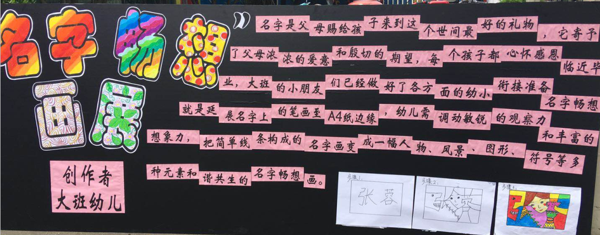 名字畅想
画展
创作者
大班幼儿
名字是父母赐给孩子来到这个世间最好的礼物，它寄予
了父母浓浓的爱意和殷切的期望，每个孩子都心怀感恩
临近毕业，大班的小朋友们已经做好了各方面的幼小衔接准备
名字畅想就是延展名字上的笔画至A4纸边缘，幼儿需调动敏锐的观察力和丰富的
想象力，把简单线条构成的名字画变成一幅人物、风景、图形、符号等多
种元素和谐共生的名字畅想画。
张蓉